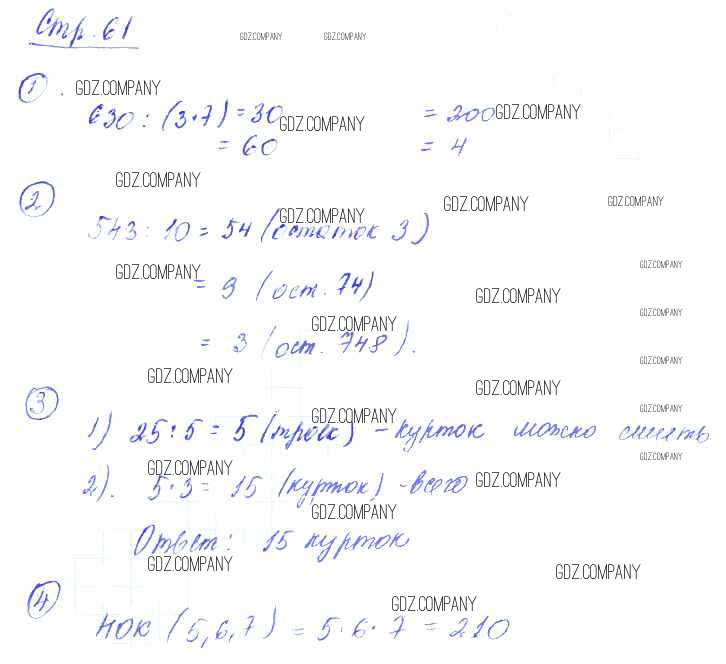 Стр. 61
GDZ.COMPANY GDZ.COMPANY
① . GDZ.COMPANY
630 : (3·7) = 30 GDZ.COMPANY = 200 GDZ.COMPANY
= 60 = 4
GDZ.COMPANY
② GDZ.COMPANY GDZ.COMPANY
GDZ.COMPANY
543 : 10 = 54 (остаток 3)
GDZ.COMPANY GDZ.COMPANY
= 9 (ост. 74) GDZ.COMPANY
GDZ.COMPANY GDZ.COMPANY
= 3 (ост. 748).
GDZ.COMPANY
③ GDZ.COMPANY GDZ.COMPANY
GDZ.COMPANY GDZ.COMPANY
1) 25 : 5 = 5 (троек) - курток можно сшить
GDZ.COMPANY GDZ.COMPANY
2). 5·3 = 15 (курток) - всего GDZ.COMPANY
GDZ.COMPANY
Ответ: 15 курток
GDZ.COMPANY GDZ.COMPANY
④ GDZ.COMPANY
НОК (5,6,7) = 5·6·7 = 210